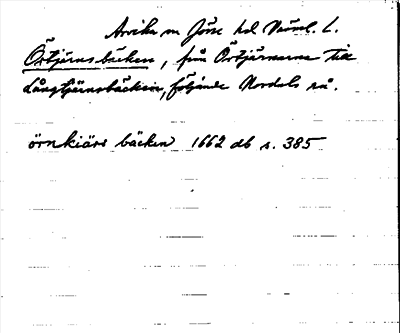 Arvika m Jöse hd Värml. l.
Örtjärnsbäcken, från Örtjärnarna till
Långtjärnsbäcken, följande Nordals rå.
örnkiärs bäcken 1662 db s. 385